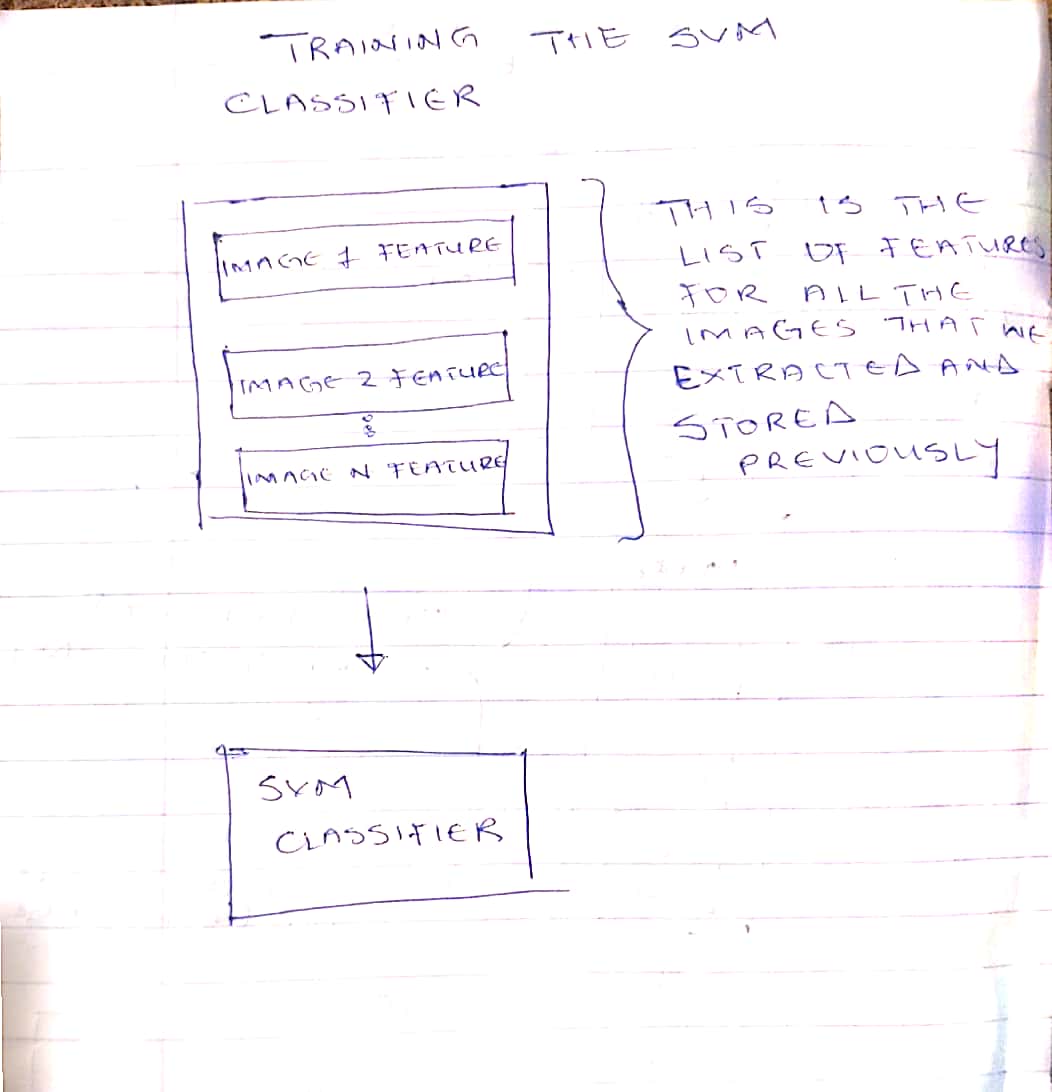 TRAINING THE SVM
CLASSIFIER
IMAGE 1 FEATURE
IMAGE 2 FEATURE
IMAGE N FEATURE
THIS IS THE
LIST OF FEATURES
FOR ALL THE
IMAGES THAT WE
EXTRACTED AND
STORED
PREVIOUSLY
SVM
CLASSIFIER